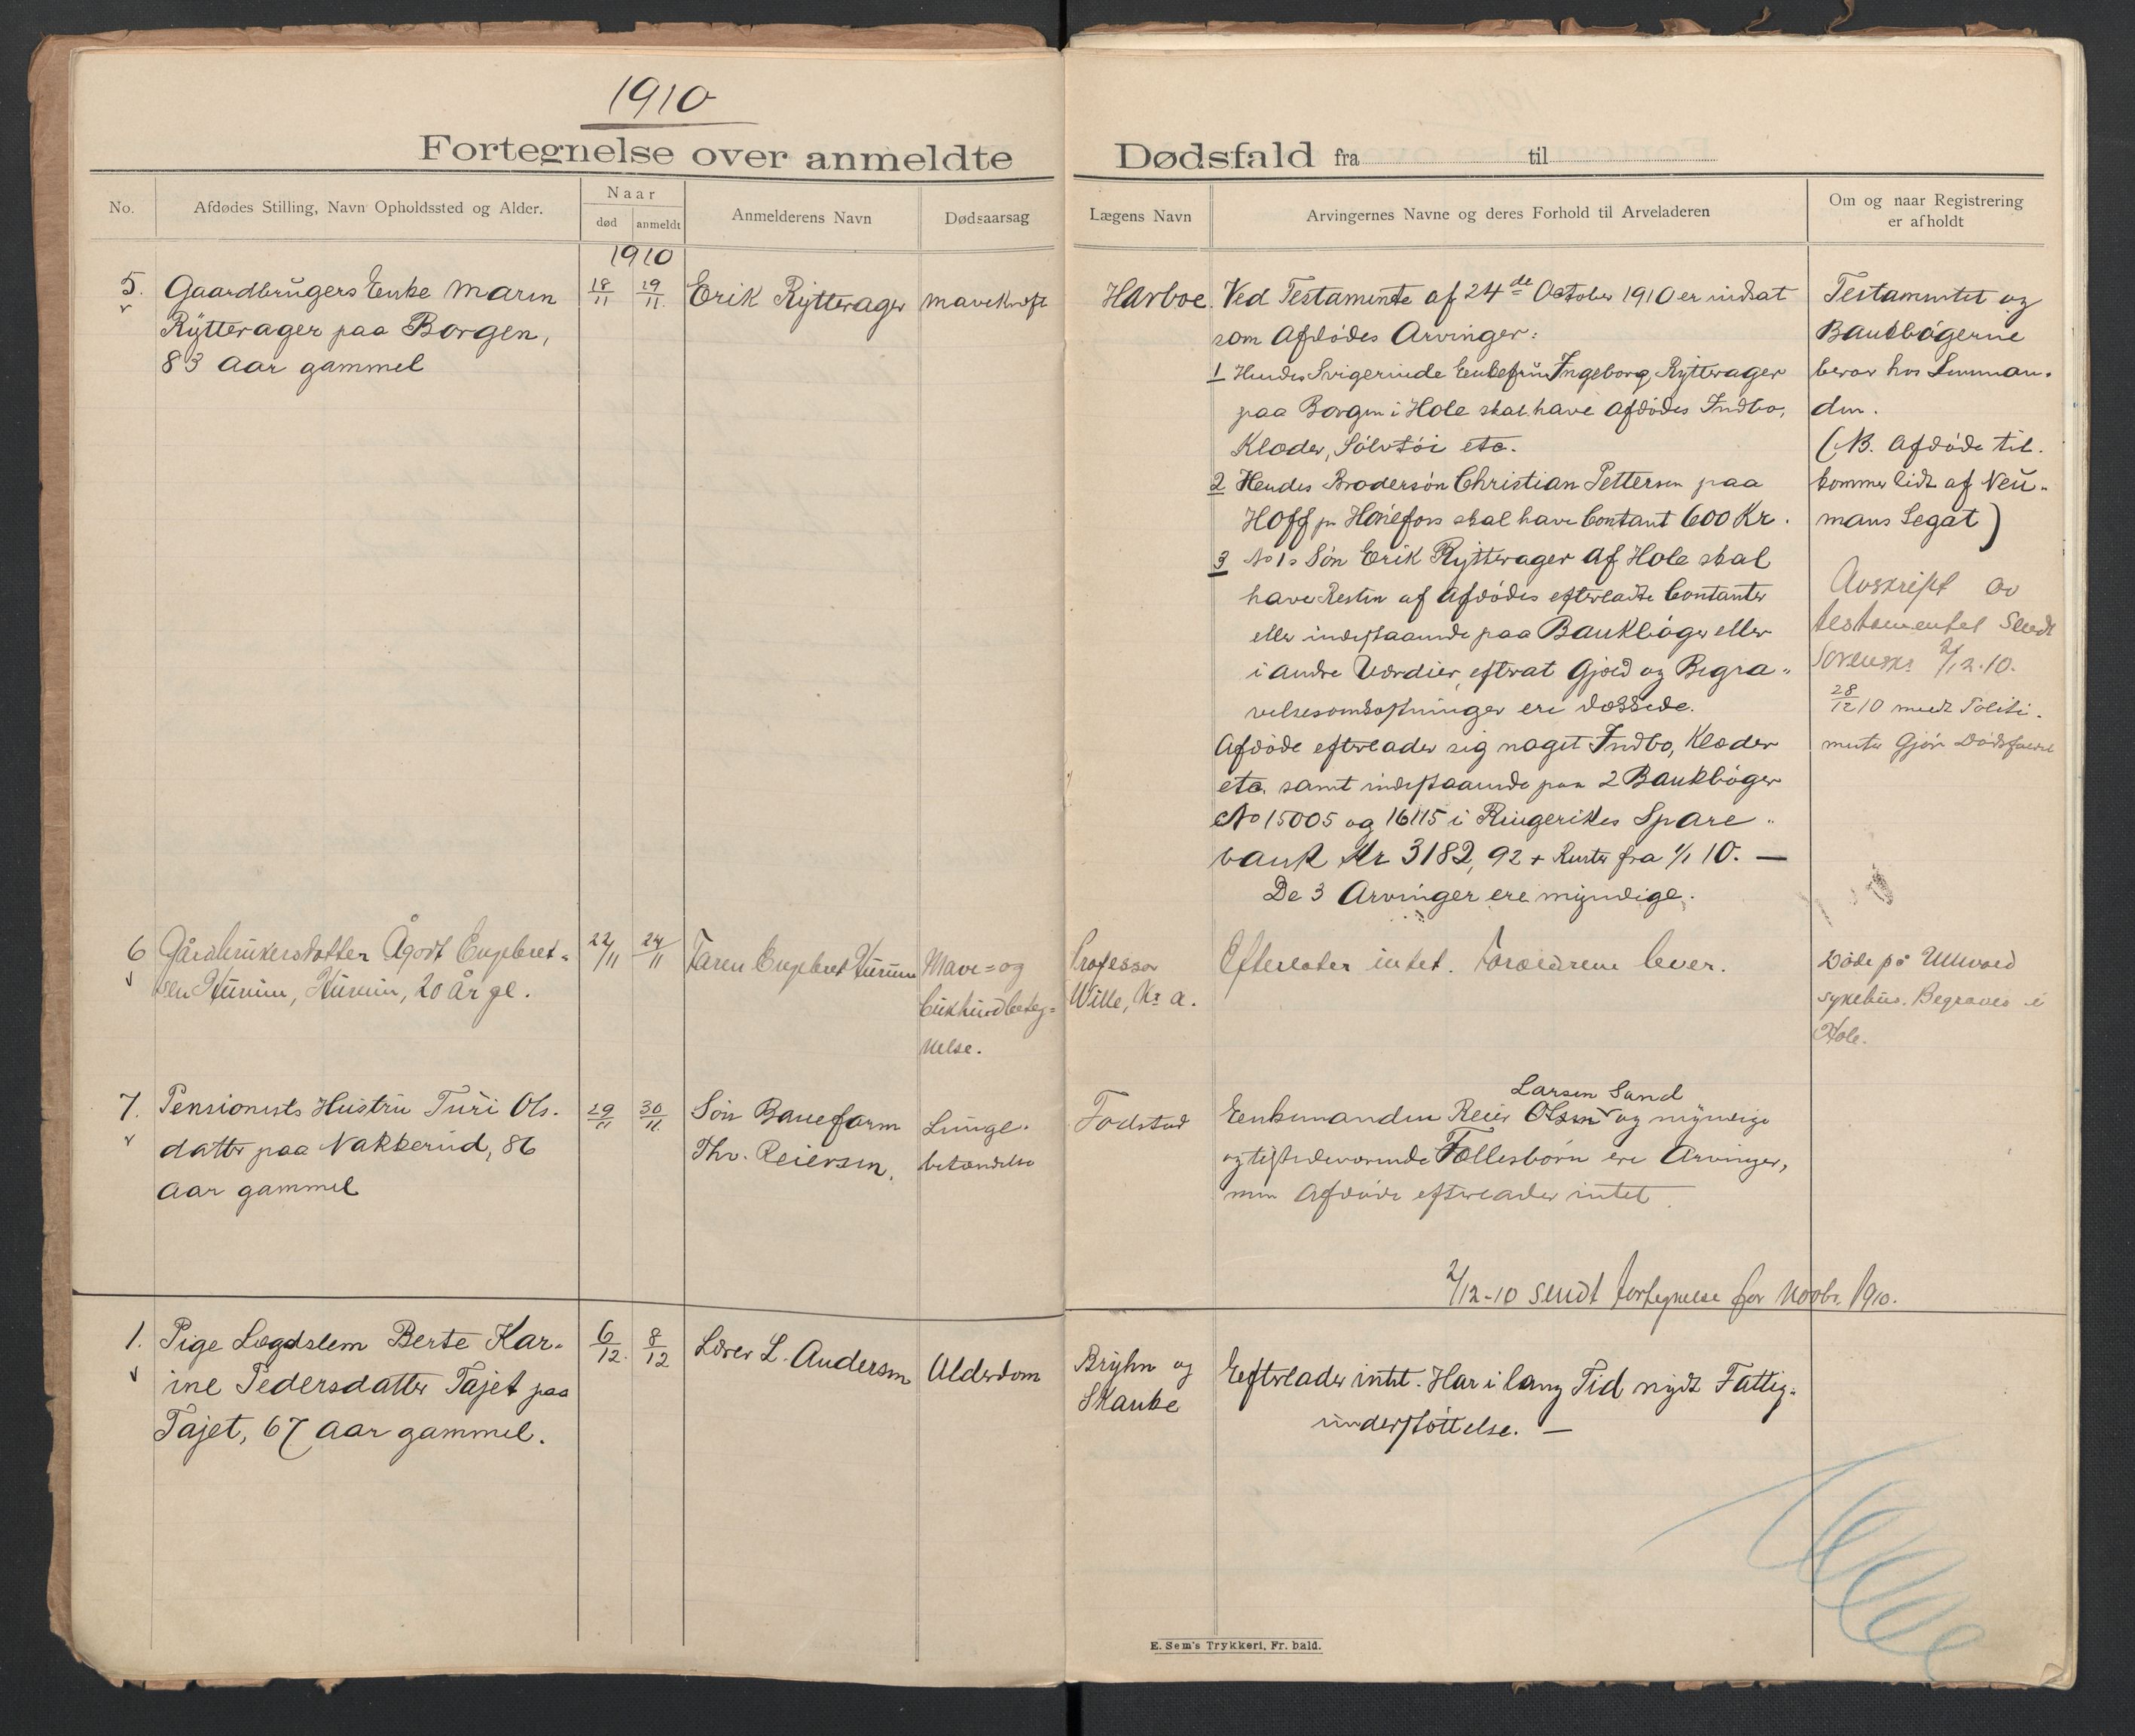 1910
Fortegnelse over anmeldte Dødsfald fra til
No.
Afdødes Stilling, Navn Opholdssted og Alder.
Naar
død
anmeldt
Anmelderens Navn
Dødsaarsag
Lægens Navn
Arvingernes Navne og deres Forhold til Arveladeren
Om og naar Registrering
er afholdt
1910
5.
Gaardbrugers Enke Maren
Rytterager paa Borgen,
83 Aar gammel
18/11
19/11
Erik Rytterager
Mavekræft
Harboe.
Ved Testamente af 24de October 1910 er indsat
som Afdødes Arvinger:
1 Hendes Svigerinde Enkefru Ingeborg Rytterager
paa Borgen i Hole skal have Afdødes Indbo,
Klæder, Sølvtøi etc.
2 Hendes Brodersøn Christian Pettersen paa
Hoff pr Hønefoss skal have Contant 600 Kr.
3 No 1s Søn Erik Rytterager af Hole skal
have Resten af Afdødes efterladte Contanter
eller indestaaende paa Bankbøger eller
i andre Værdier, efterat Gjæld og Begra-
velsesomkostninger ere dækkede.
Afdøde efterlader sig noget Indbo, Klæder
etc. samt indestaaende paa 2 Bankbøger
No 15005 og 16115 i Ringerikes Spare-
bank Kr 3182,92 + Renter fra 1/1 10. —
De 3 Arvinger ere myndige.
Testamentet og
Bankbøgerne
beror hos Lensman-
den.
(NB. Afdøde til-
kommer lidt af Neu-
manns Legat)
Avskrift av
testamentet sendt
Sorenskr. 2/12.10.
28/12 10 meldt Politi-
mester Gjør Dødsfaldet
6
Gårdbrukersdatter Ågodt Engebret-
sen Hurum, Hurum, 20 år gl.
22/11
24/11
Faren Engebret Hurum
Mave- og
bukhindbeteg-
nelse.
Professor
Wille, Kr.a.
Efterlater intet. Forældrene lever.
Døde på Ullevold
sykehus. Begraves i
Hole.
7.
Pensionists Hustru Turi Ols-
datter paa Nakkerud, 86
Aar gammel
29/11
30/11
Søn Baneform
Thv. Reiersen.
Lunge-
betændelse
Fodstad
Larsen Sund
Enkemanden Reier Olsen og myndige
og tilstedeværende Fællesbørn ere Arvinger,
men Afdøde efterlader intet
2/12-10 sendt fortegnelse for Novbr. 1910.
1.
Pige Lægdslem Berte Kar-
ine Pedersdatter Tajet paa
Tajet, 67 Aar gammel.
6/12.
8/12
Lærer L. Andersen
Alderdom
Bryhn og
Skaube
Efterlader intet. Har i lang Tid nydt Fattig-
understøttelse. —
E. Sem's Trykkeri, Fr. hald.